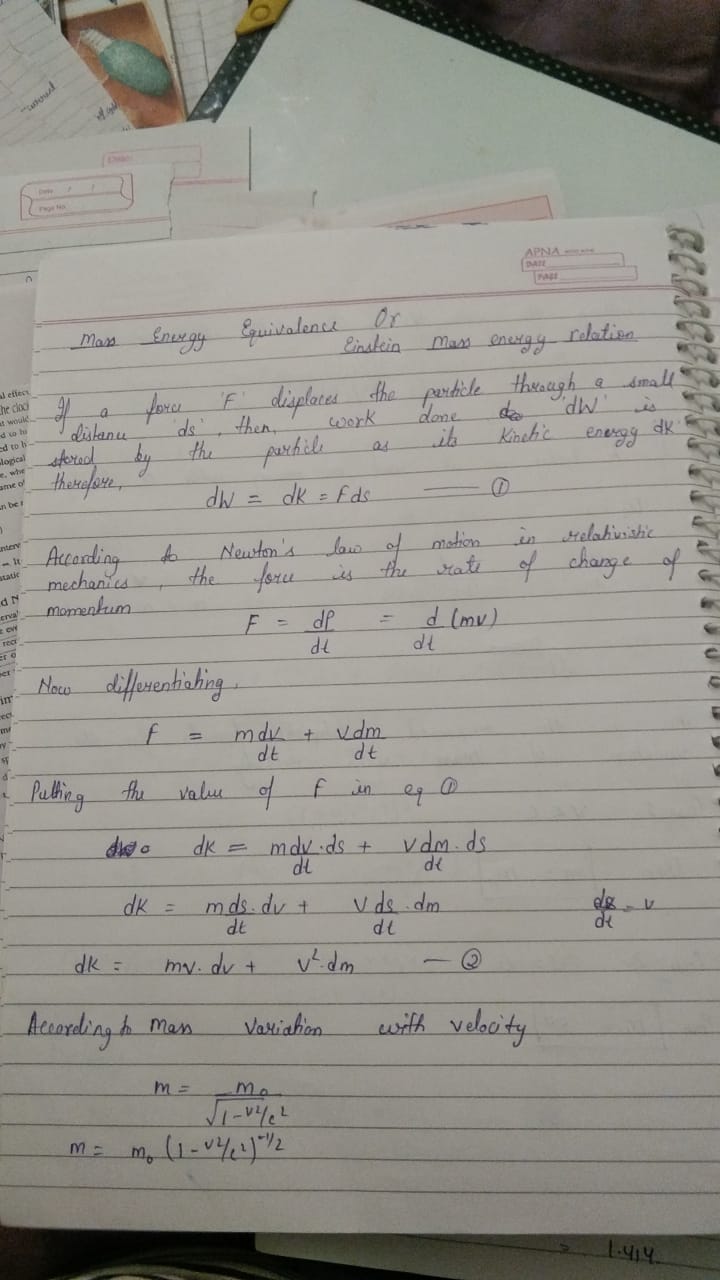 current
Date / /
Page No.
APNA
DATE
PAGE
Mass Energy Equivalence Or
Einstein Mass energy relation
If a force 'F' displaces the particle through a small
distance 'ds', then, work done 'dW' is
stored by the particle as its Kinetic energy dK
therefore,
dW = dK = Fds — ①
According to Newton's law of motion in relativistic
mechanics, the force is the rate of change of
momentum
F = dP/dt = d/dt (mv)
Now differentiating,
F = mdv/dt + vdm/dt
Putting the value of F in eq ①
dK = mdv/dt.ds + vdm/dt.ds
dK = mds/dt.dv + vds/dt.dm ds/dt = v
dK = mv.dv + v².dm — ②
According to mass variation with velocity
m = m₀/√1-v²/c²
m = m₀ (1-v²/c²)^-1/2
= 1.414